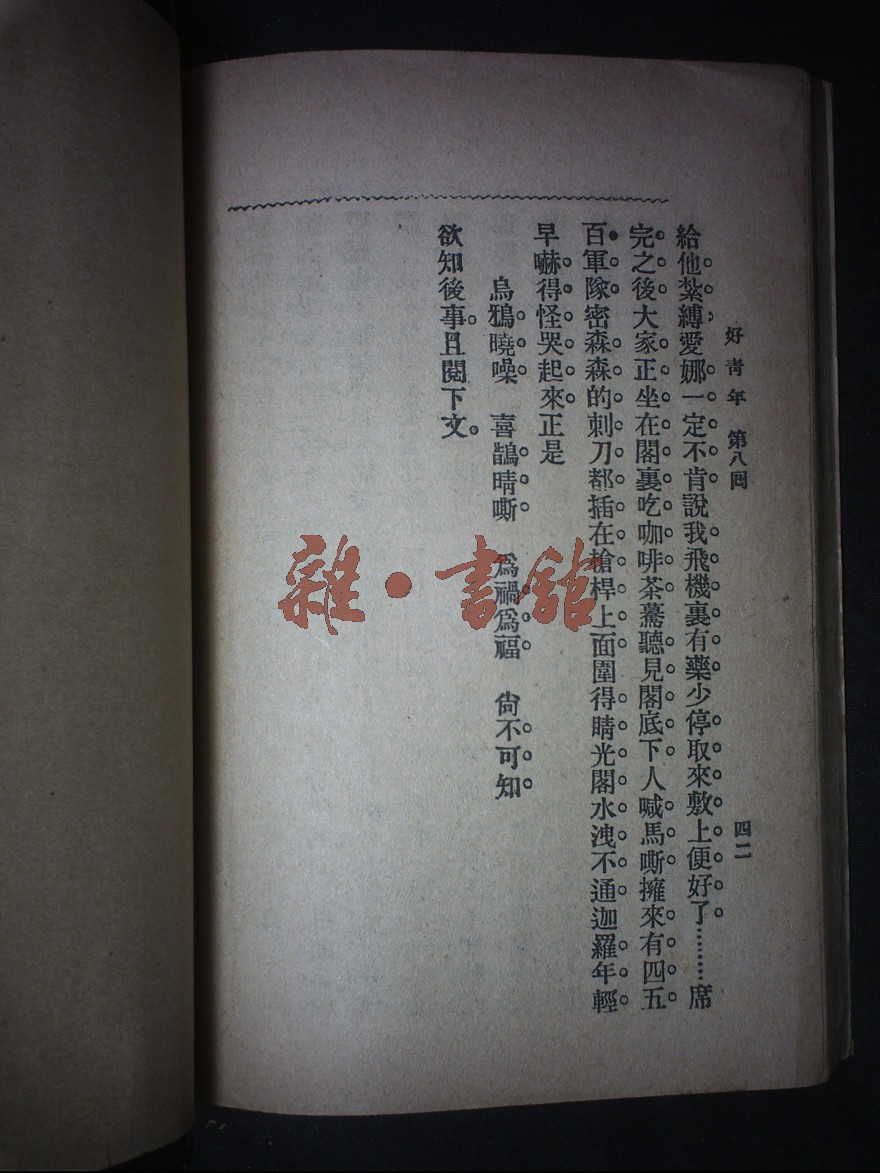 好青年 第八回 四二
給他紮縛愛娜一定不肯說我飛機裏有藥少停取來敷上便好了………席
完之後大家正坐在閣裏吃咖啡茶驀聽見閣底下人喊馬嘶擁來有四五
百軍隊密森森的刺刀都插在槍桿上面圍得晴光閣水洩不通迦羅年輕
早嚇得怪哭起來正是
烏鴉曉噪 喜鵲晴嘶 爲禍爲福 尙不可知
欲知後事且閱下文
雜·書館